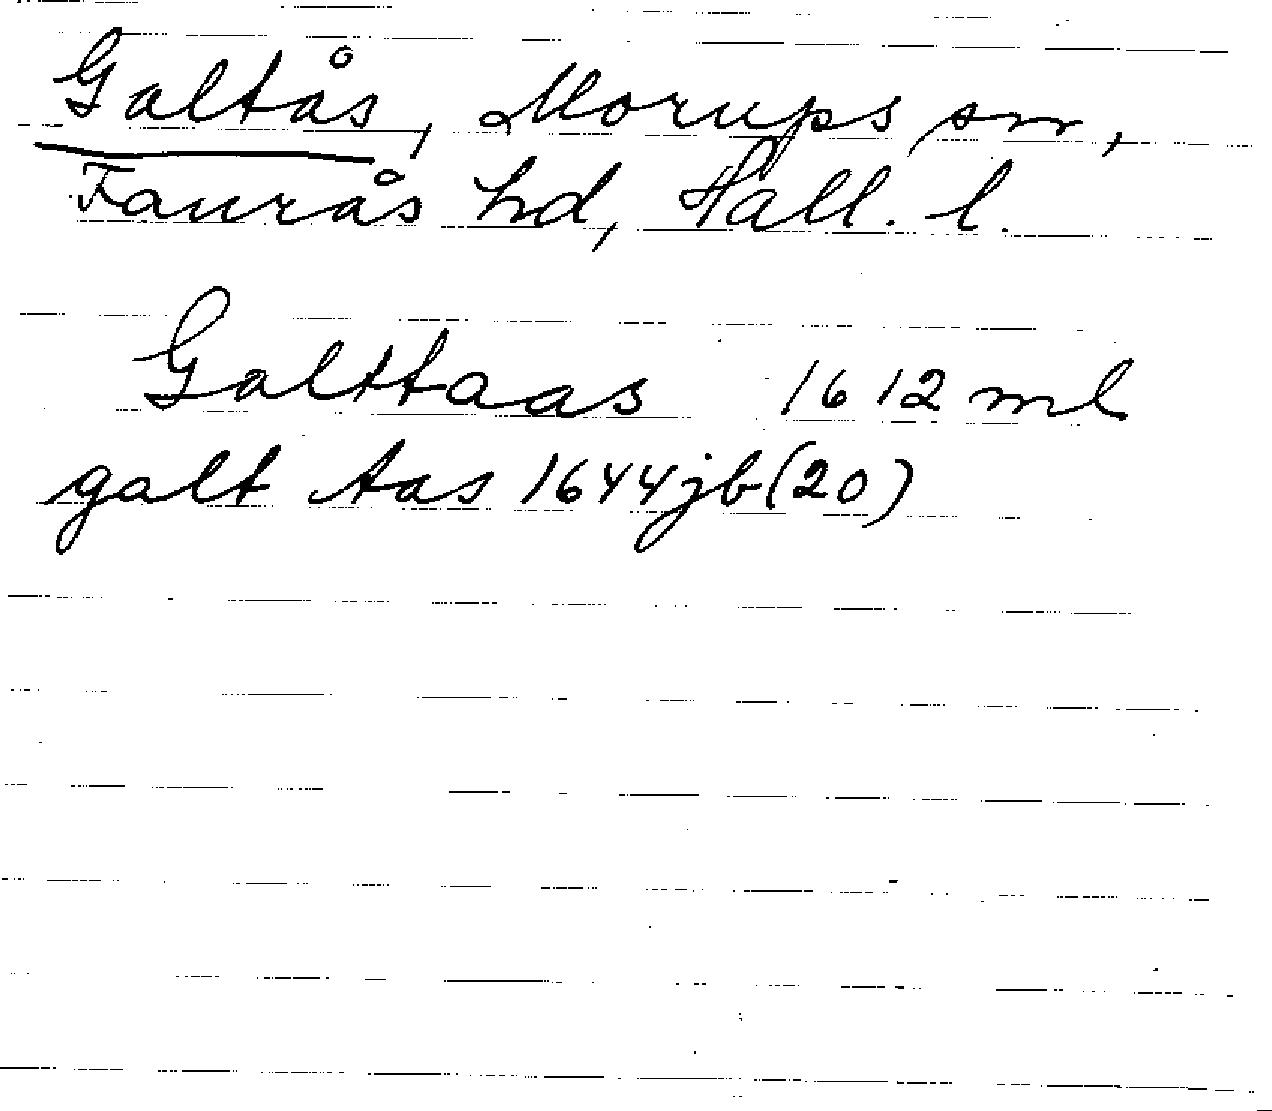 Galtås, Morups sn,
Faurås hd, Hall. l.
Galttaas 1612 ml
galt Aas 1644 jb (20)